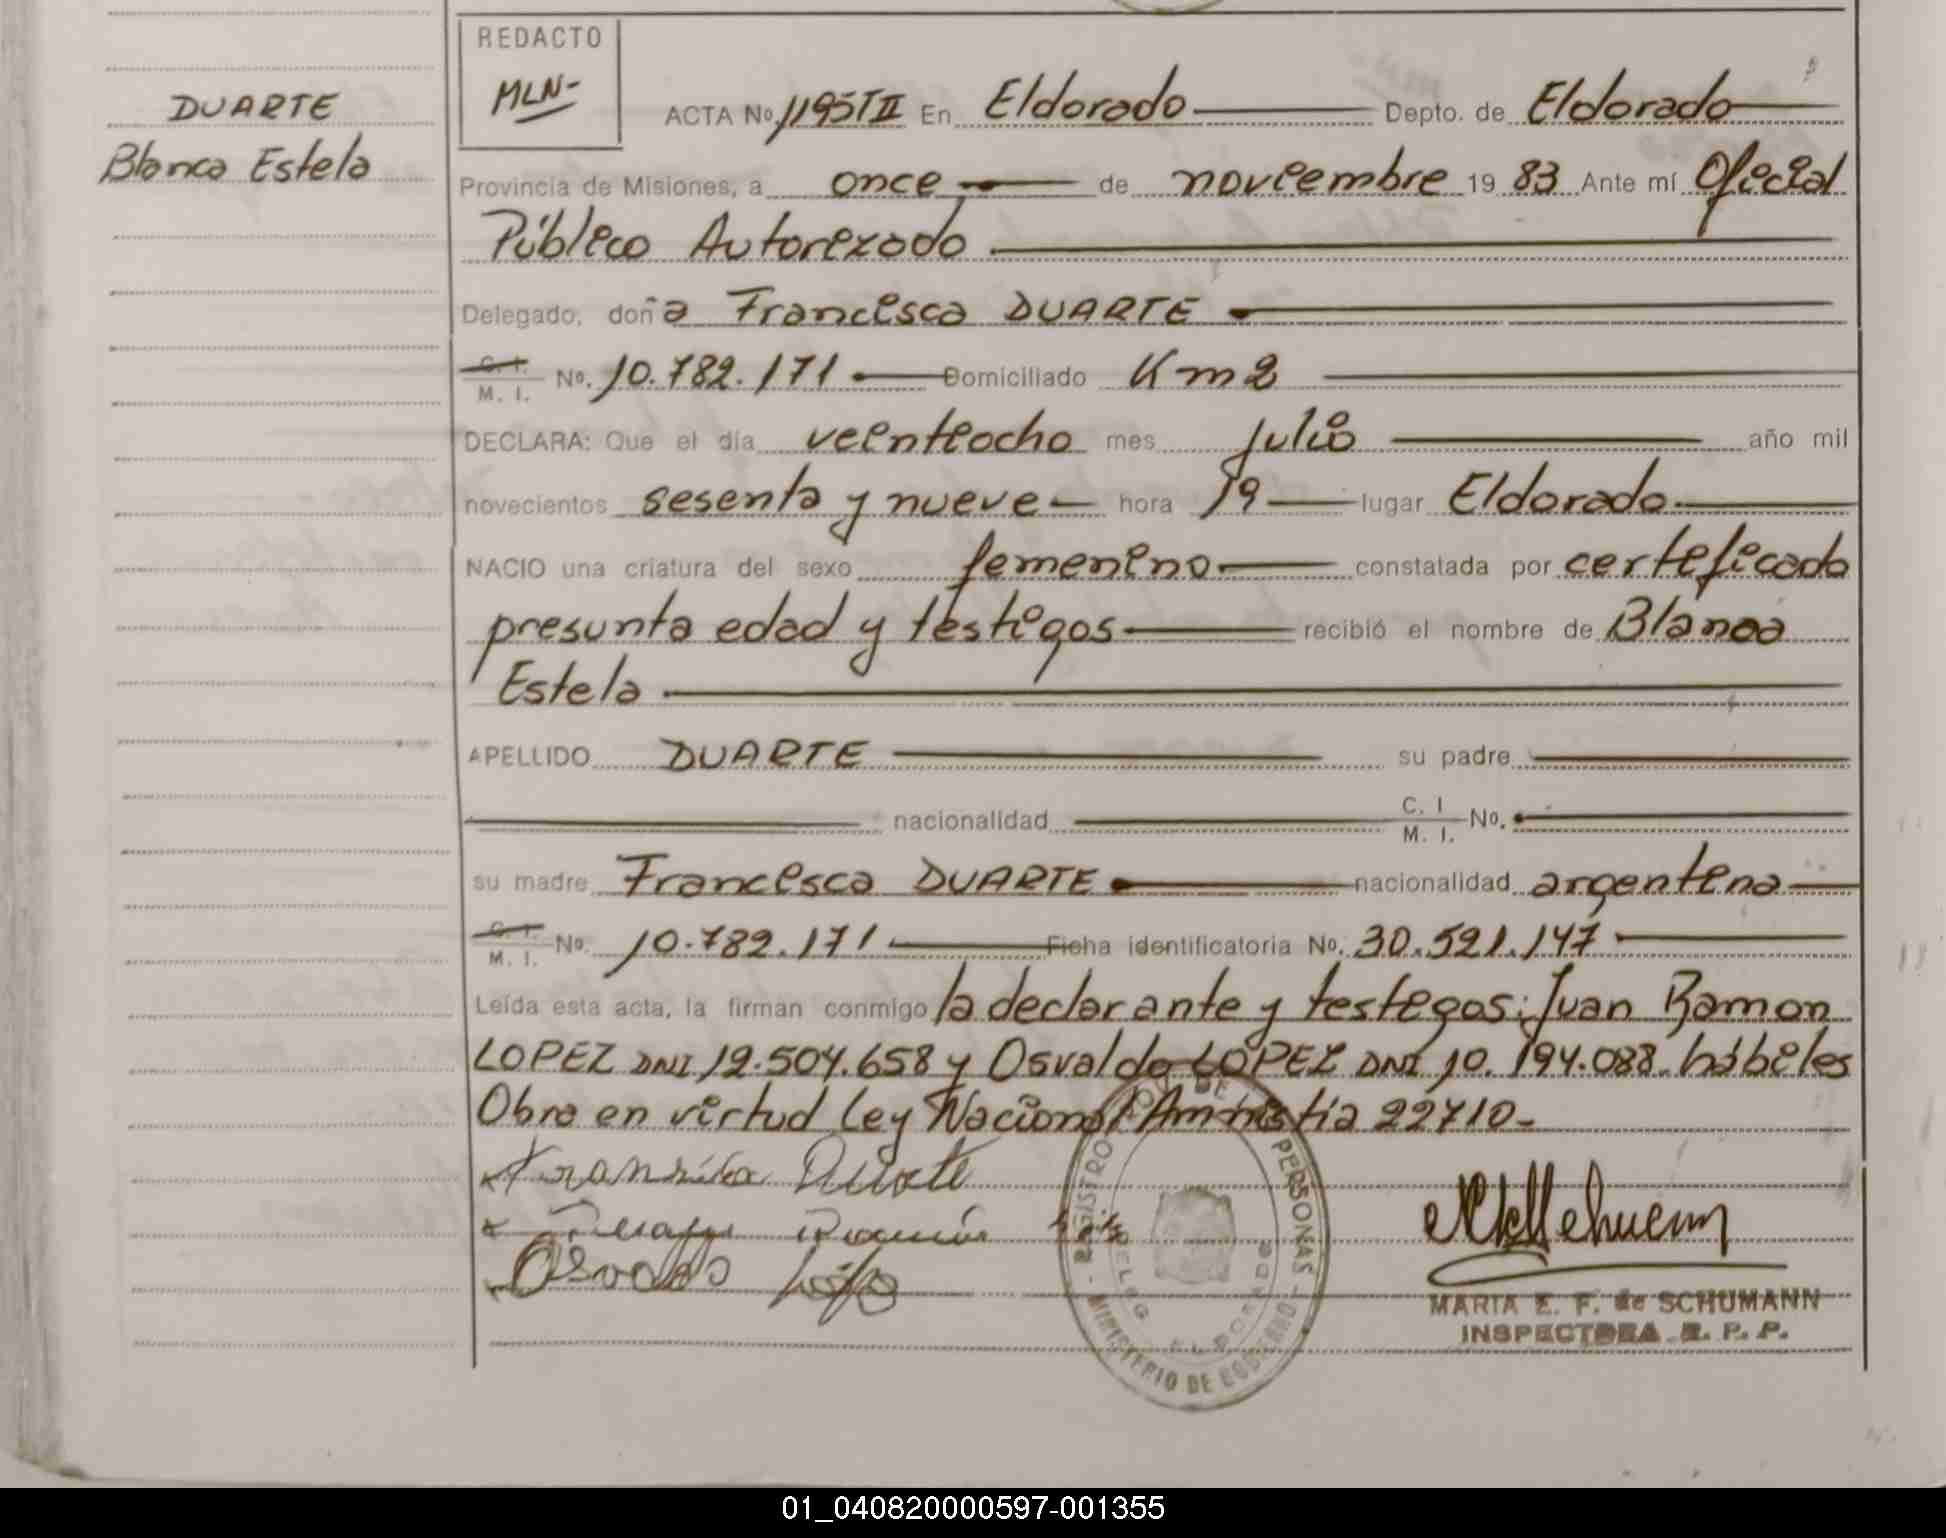 DUARTE
Blanca Estela
REDACTO
MLN-
ACTA No. 1195TII En Eldorado Depto. de Eldorado
Provincia de Misiones, a once de noviembre 19 83 Ante mí Oficial
Público Autorizado
Delegado, doña Francisca DUARTE
C. I. M. I. No. 10.782.171 Domiciliado Km 2
DECLARA: Que el día veintiocho mes julio año mil
novecientos sesenta y nueve hora 19 lugar Eldorado
NACIO una criatura del sexo femenino constatada por certificado
presunta edad y testigos recibió el nombre de Blanca
Estela
APELLIDO DUARTE su padre
nacionalidad C. I M. I. No.
su madre Francisca DUARTE nacionalidad argentina
C. I. M. I. No. 10.782.171 Ficha identificatoria No. 30.521.147
Leída esta acta, la firman conmigo la declarante y testigos: Juan Ramon
LOPEZ DNI 12.504.658 y Osvaldo LOPEZ DNI 10.194.088 hábiles
Obra en virtud Ley Nacional Amnistía 22710-
Duarte
Osvaldo López
REGISTRO DE PERSONAS
MINISTERIO DE GOBIERNO
DELEG ELDORADO
MARIA E. F. de SCHUMANN
INSPECTORA R. P. P.
01_040820000597-001355